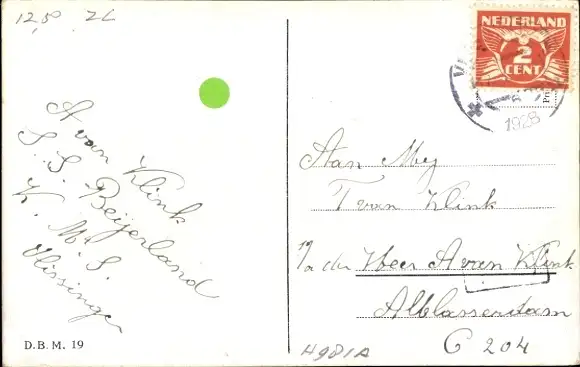 12,50 ZL
A van Klink
S.S. Beijerland
K. M. S.
Vlissingen
D.B.M. 19
NEDERLAND
2
CENT
1928
Aan Mej
T van Klink
p/a den Heer A van Klink
Alblasserdam
C 204
4981A